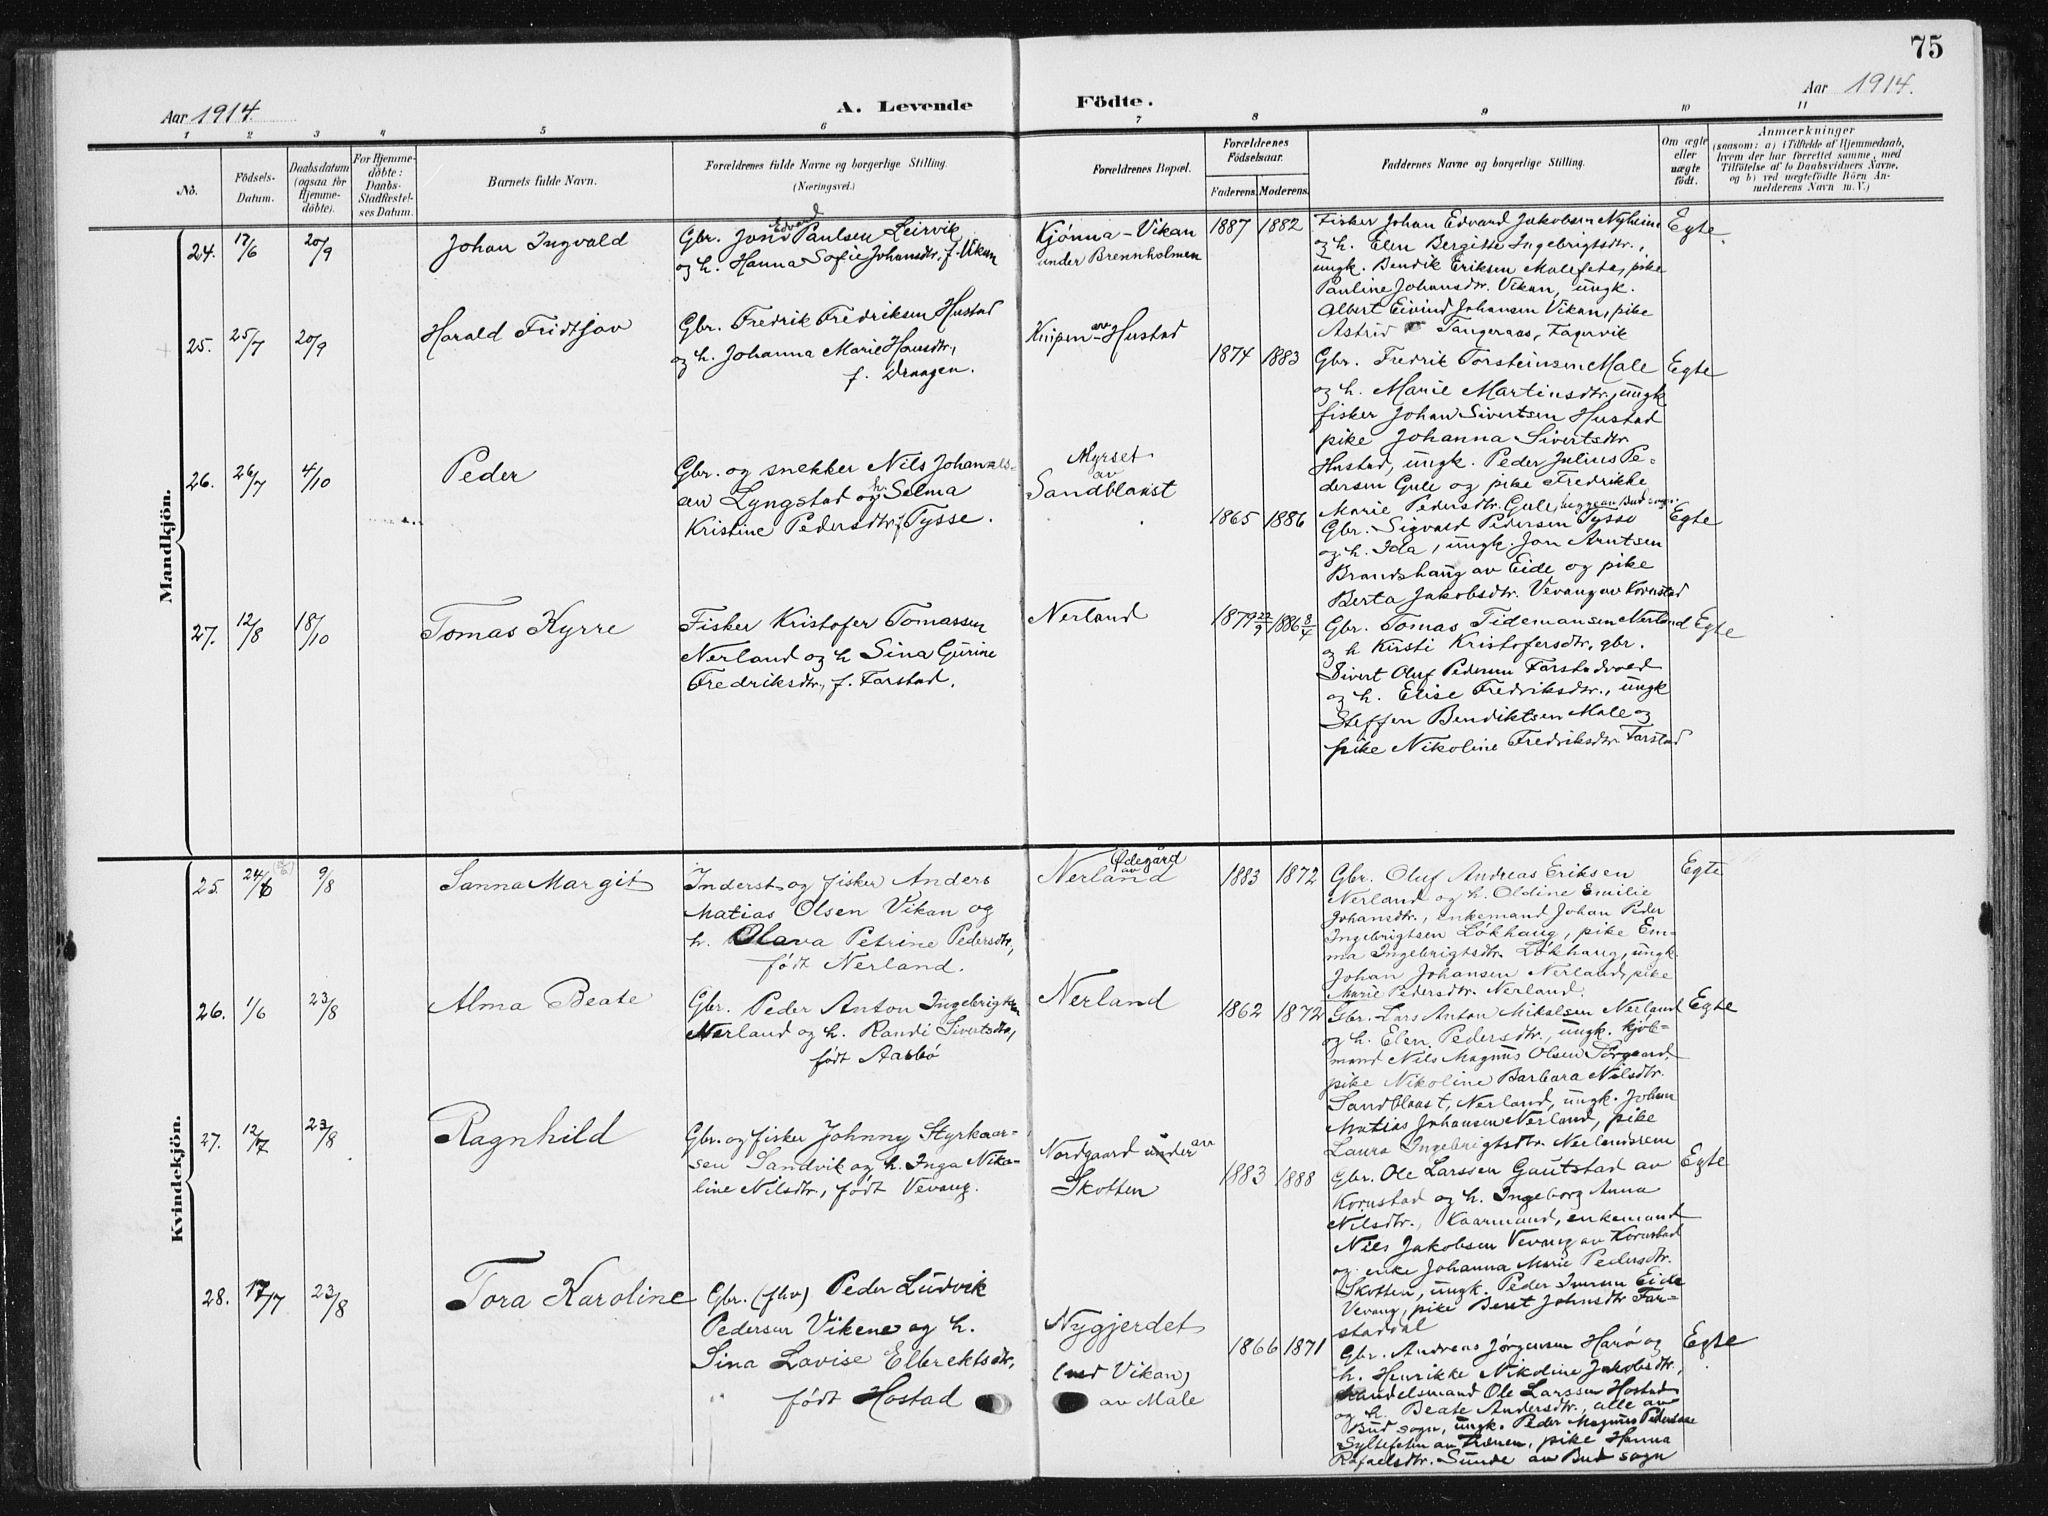 75
Aar 1914.
A. Levende Födte.
Aar 1914.
1 2 3 4 5 6 7 8 9 10 11
No.
Födsels-Datum.
Daabsdatum (ogsaa for Hjemme-döbte).
For Hjemme-döbte: Daabs-Stadfæstelses Datum.
Barnets fulde Navn.
Forældrenes fulde Navne og borgerlige Stilling.
(Næringsvei.)
Forældrenes Bopæl.
Forældrenes Födselsaar.
Faderens. Moderens.
Faddernes Navne og borgerlige Stilling.
Om ægte eller uægte födt.
Anmærkninger
(saasom: a) i Tilfælde af Hjemmedaab,
hvem der har forrettet samme, med
Tilföielse af to Daabsvidners Navne.
og b) ved uægtefödte Börn An-
melderens Navn m. V.)
Mandkjön.
24. 17/6 20/9 Johan Ingvald
Gbr. Jons Edvard Paulsen Leirvik
og h. Hanna Sofie Johansdtr, f. Vikan
Kjønna-Vikan
under Brennholmen
1887 1882
Fisker Johan Edvard Jakobsen Nyheim
og h. Elen Bergitte Ingebrigtsdtr.,
ungk. Bendik Eriksen Malefeta, pike
Pauline Johansdtr. Vikan, ungk.
Albert Eivind Johansen Vikan, pike
Astrid Tangeraas, Fagervik
Egte.
25. 25/7 20/9 Harald Fridtjov
Gbr. Fredrik Fredriksen Hustad
og h. Johanna Marie Hansdtr,
f. Draagen.
Knipen av Hustad
1874 1883
Gbr. Fredrik Torsteinsen Male
og h. Marie Martinsdtr., ungk
fisker Johan Sivertsen Hustad
pike Johanna Sivertsdtr
Hustad, ungk. Peder Julius Pe-
dersen Gule og pike Fredrikke
Marie Pedersdtr. Gule, begge av Bud sogn.
Egte
26. 26/7 4/10 Peder
Gbr. og snekker Nils Johannes-
en Lyngstad og h. Selma
Kristine Pedersdtr, f. Tysse.
Myrset
av
Sandblaast
1865 1886
Gbr. Sigvald Pedersen Tysse
og h. Ida, ungk. Jon Arntsen
Brandshaug av Eide og pike
Berta Jakobsdtr. Vevang av Kornstad
Egte
27. 12/8 18/10 Tomas Kyrre
Fisker Kristofer Tomassen
Nerland og h Sina Gurine
Fredriksdtr., f. Farstad.
Nerland
1879 22/9 1886 8/4
Gbr. Tomas Tidemansen Nerland
og h Kirsti Kristofersdtr, gbr.
Sivert Oluf Pedersen Farstadvold
og h. Elise Fredriksdtr., ungk
Steffen Bendiktsen Male og
pike Nikoline Fredriksdtr. Farstad
Egte
Kvindekjön.
25. 24/6 9/8 Sanna Margit
Inderst og fisker Anders
Matias Olsen Vikan og
h. Olava Petrine Pedersdtr,
født Nerland.
Ødegård
av
Nerland
1883 1872
Gbr. Oluf Andreas Eriksen
Nerland og h. Oldine Emilie
Johansdtr., enkemand Johan Peder
Ingebrigtsen Løkhaug, pike Em-
ma Ingebrigtsdtr. Løkhaug, ungk.
Johan Johansen Nerland, pike
Marie Pedersdtr. Nerland.
Egte
26. 1/6 23/8 Alma Beate
Gbr. Peder Anton Ingebrigtsen
Nerland og h. Randi Sivertsdtr,
født Aasbø
Nerland
1862 1872
Gbr. Lars Anton Mikalsen Nerland
og h. Elen Pedersdtr., ungk. kjøb-
mand Nils Magnus Olsen Sørgaard,
pike Nikoline Barbara Nilsdtr.
Sandblaast, Nerland, ungk. Johan
Matias Johansen Nerland, pike
Laura Ingebrigtsdtr. Nerlandsrem
Egte
27. 12/7 23/8 Ragnhild
Gbr. og fisker Johnny Styrkaar-
sen Sandvik og h. Inga Niko-
line Nilsdtr., født Vevang.
Nordgaard under av
Skotten
1883 1888
Gbr. Ole Larssen Gautstad av
Kornstad og h. Ingeborg Anna
Nilsdtr., Kaarmand, enkemand
Nils Jakobsen Vevang av Kornstad
og enke Johanna Marie Pedersdtr.
Skotten, ungk. Peder Eide
Vevang, pike Beret Johnsdtr Far-
staddal
Egte
28. 17/7 23/8 Tora Karoline
Gbr. (fhv) Peder Ludvik
Pedersen Vikene og h.
Sina Lovise Elbrektsdtr,
født Hostad
Nygjerdet
(ved Vikan)
av Male
1866 1871
Gbr. Andreas Jørgensen Harø og
h. Henrikke Nikoline Jakobsdtr,
Handelsmand Ole Larssen Hostad
og h. Beate Andersdtr., alle av
Bud sogn, ungk. Peder Magnus Pedersen
Syltefeten av Frænen, pike Hanna
Rafaelsdtr. Sunde av Bud sogn
Egte